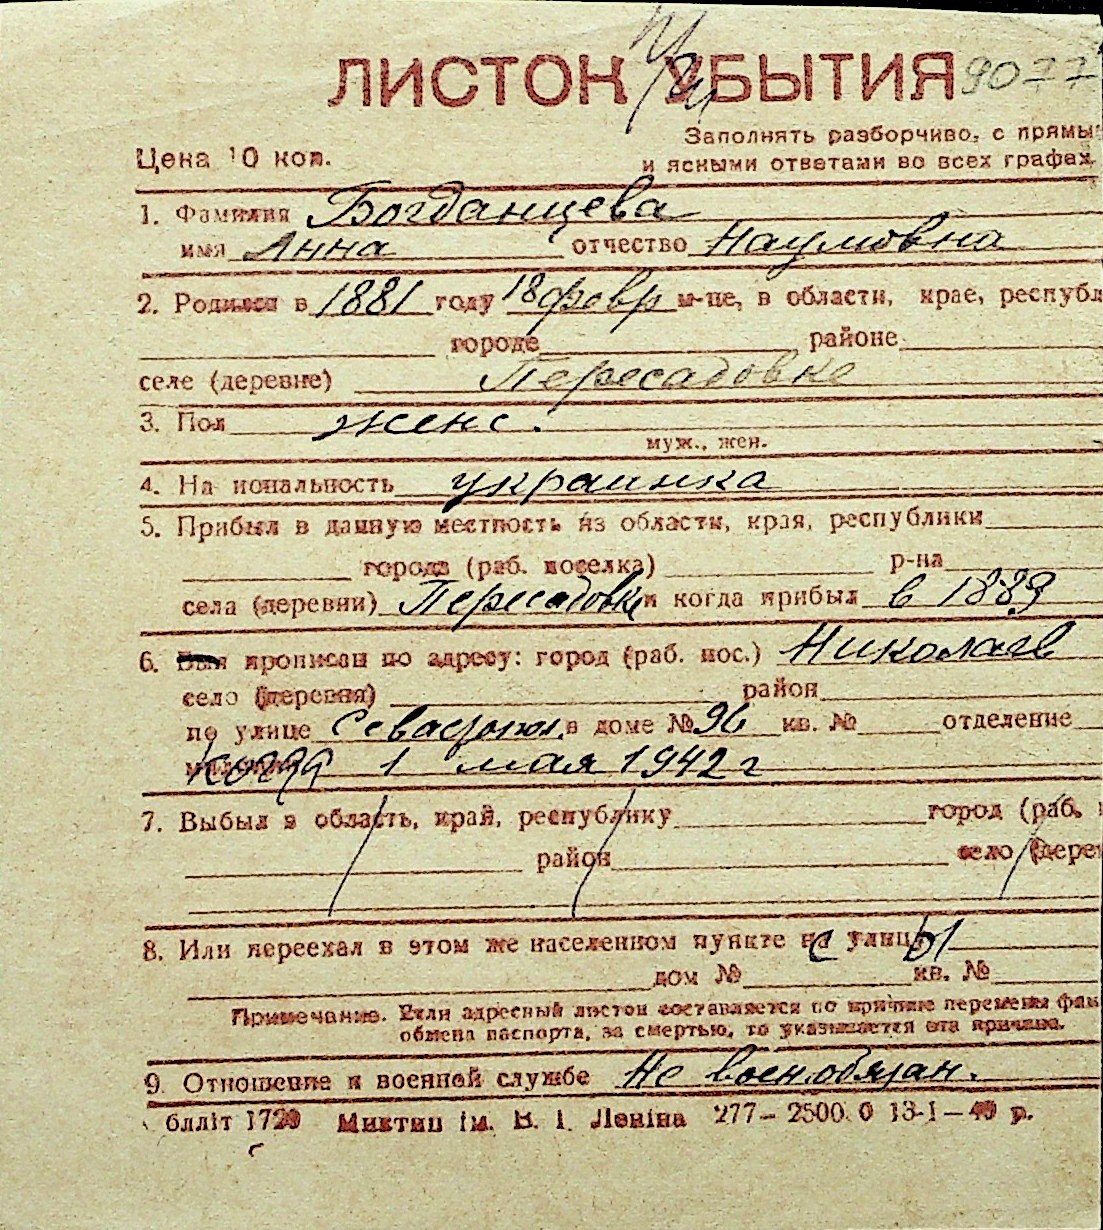 ЛИСТОК УБЫТИЯ 9077
Заполнять разборчиво, с прямы
Цена 10 коп.
и ясными ответами во всех графах.
1. Фамилия Богданцева
имя Анна отчество Наумовна
2. Родился в 1881 году 18 февр м-це, в области, крае, республ
городе районе
селе (деревне) Пересадовке
3. Пол женс.
муж., жен.
4. На иональность украинка
5. Прибыл в данную местность из области, края, республики
города (раб. поселка) р-на
села (деревни) Пересадовки и когда прибыл в 1889
6. прописан по адресу: город (раб. пос.) Николаев
село (деревня) район
по улице Севастопол. в доме № 96 кв. № отделение
когда 1 мая 1942 г
7. Выбыл в область, край, республику город (раб.
район село (дерев
8. Или переехал в этом же населенном пункте с улицы
дом № кв. №
Примечание. Если адресный листок составляется по причине перемены фам
обмена паспорта, за смертью, то указывается эта причина.
9. Отношение к военной службе Не военобязан.
блліт 1720 Миктип ім. В. І. Леніна 277—2500 0 13-І—40 р.